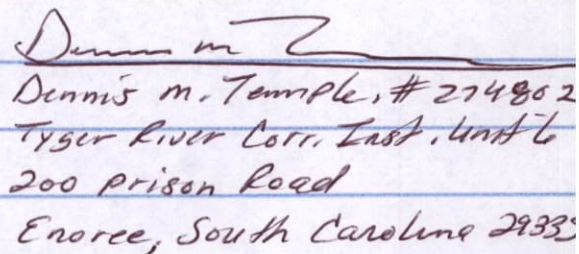 Dennis m.
Dennis m. Temple, # 274802
Tyger River Corr. Inst. Unit 6
200 prison Road
Enoree, South Carolina 2933